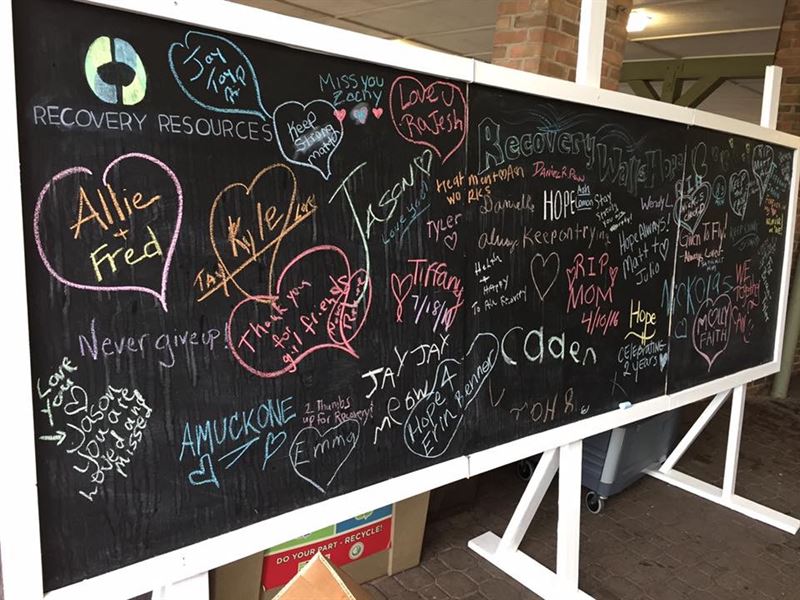 RECOVERY RESOURCES
Jay
Jay
Keep
Strong
Miss you
Zachy
Love U
Rajesh
Allie
+
Fred
JAY
Kyle
Love
Jason
Love you
Thank you
for my
girl friends
Never give up!
Tyler
Tiffany
7/18/17
Recovery Walls Hope
Daniel R Pow
Danielle
HOPE
Ash
Stay
Strong
Wendy L
always
Keep on trying
Health
+
Happy
To All Recovery
RIP
MOM
4/10/16
Hope Always!
Matt
Julio
Hope
Celebrating
2 years
RIP
Given To Fly!
Keep
Nickolas
Molly
FAITH
WE
CAN
JAY JAY
meow
Hope 4
Erin Renner
Caden
JOHR
Love
you
Jason
You are
Loved and
missed
AMUCKONE
2 Thumbs
up for Recovery!
Emma
DO YOUR PART - RECYCLE!